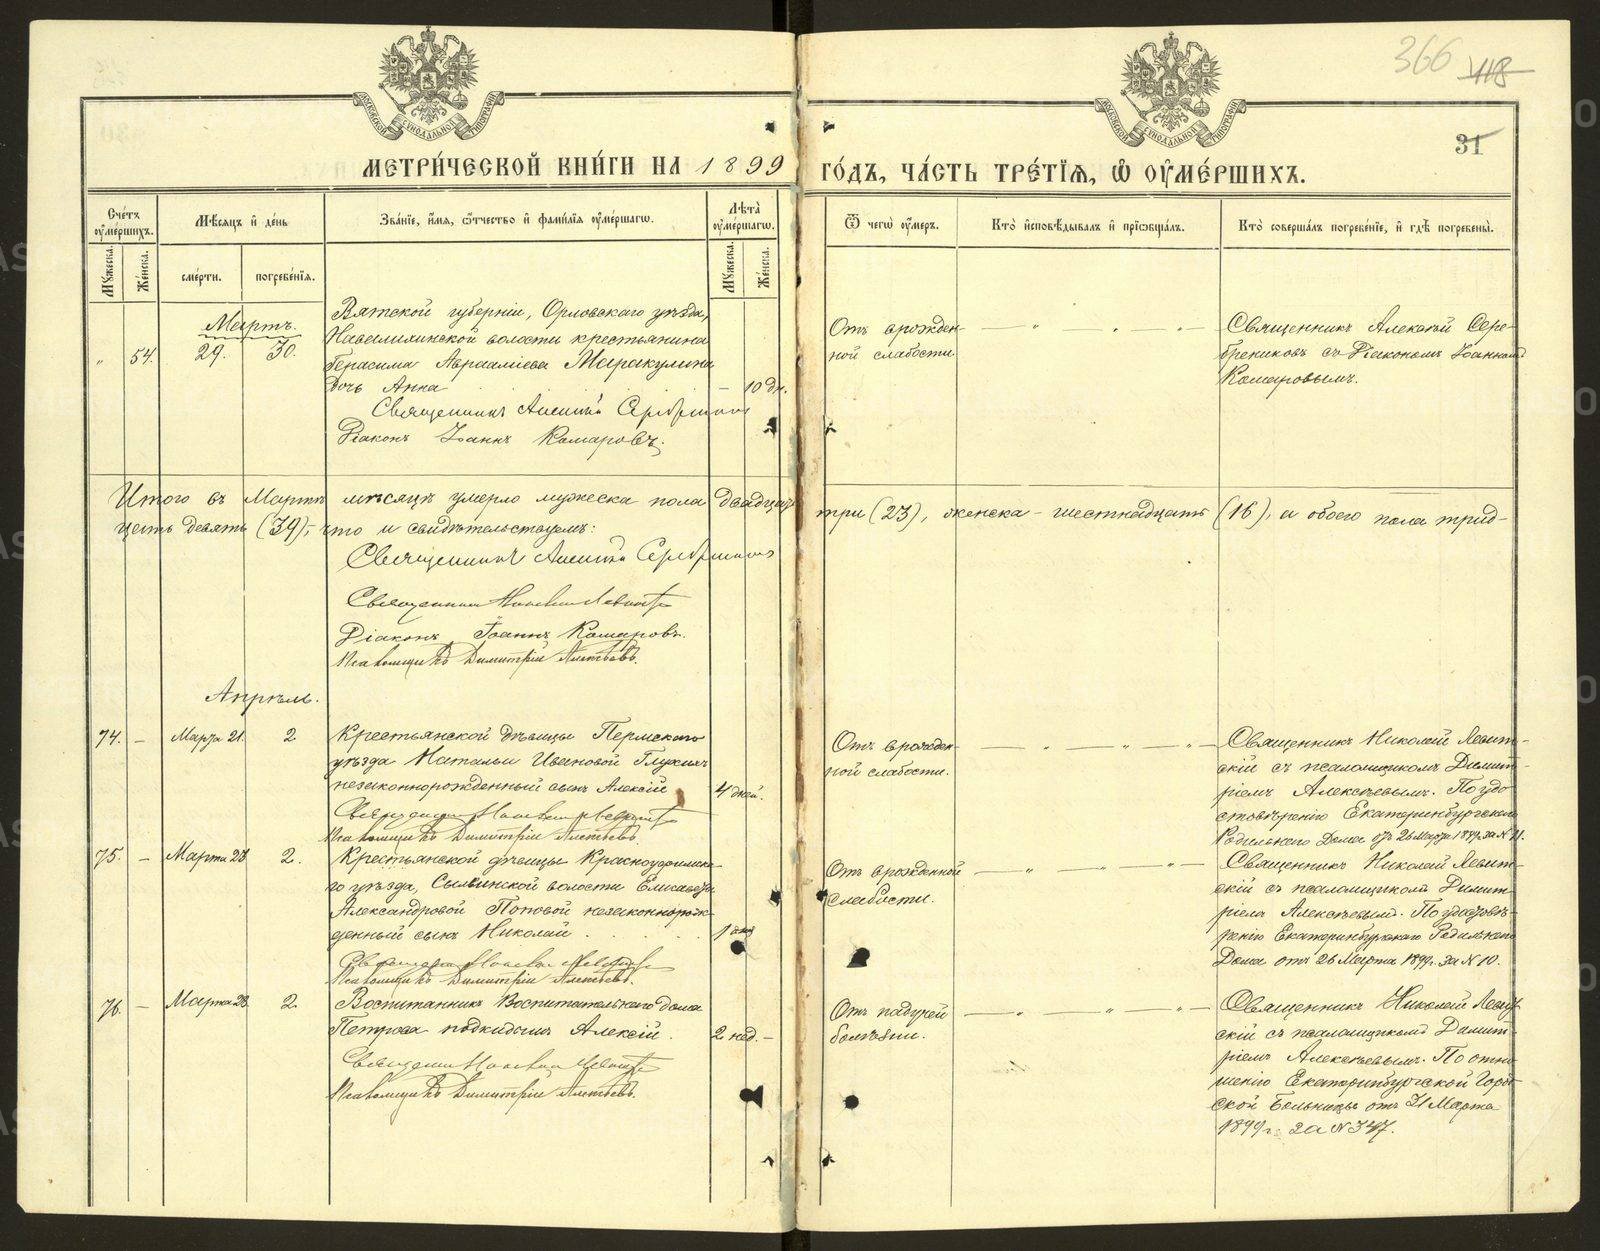 366 118
31
МОСКОВСКОЙ СѴНОДАЛЬНОЙ ТИПОГРАФІИ
МОСКОВСКОЙ СѴНОДАЛЬНОЙ ТИПОГРАФІИ
МЕТРИ́ЧЕСКОЙ КНИ́ГИ НА 1899 ГО́ДЪ, ЧА́СТЬ ТРЕ́ТЇѦ, Ѡ҆ ОУ҆МЕ́РШИХЪ.
Сче́тъ оу҆ме́ршихъ.
Мѣ́сяцъ и҆ де́нь
Зва́нїе, и҆́мѧ, ѻ҆́тчество и҆ фами́лїѧ оу҆ме́ршагѡ.
Лѣ́та оу҆ме́ршагѡ.
Ѿ чегѡ̀ оу҆́меръ.
Кто̀ и҆сповѣ́дывалъ и҆ прїѡбща́лъ.
Кто̀ соверша́лъ погребе́нїе, и҆ гдѣ̀ погребены̀.
Му́жеска.
Же́нска.
сме́рти.
погребе́нїѧ.
Му́жеска.
Же́нска.
Мартъ.
„ 54. 29. 30.
Вятской губерніи, Орловскаго уѣзда,
волости крестьянина
Герасима Авраамiева Маракулина
дочь Анна – 10 дн.
Священникъ Алексѣй Серебрениковъ
Діаконъ Іоаннъ Комаровъ.
Отъ врожден-
ной слабости.
Священникъ Алексѣй Сере-
брениковъ съ Діакономъ Іоанномъ
Комаровымъ.
Итого въ Мартѣ мѣсяцѣ умерло мужеска пола двадцать три (23), женска – шестнадцать (16), а обоего пола трид-
цать девять (39),– что и свидѣтельствуемъ:
Священникъ Алексѣй Серебрениковъ
Священникъ Николай Левитскій
Діаконъ Іоаннъ Комаровъ.
Псаломщикъ Димитрій Алексѣевъ.
Апрѣль.
74. – Марта 21. 2
Крестьянской дѣвицы Пермскаго
уѣзда Натальи Ивановой Глухихъ
незаконнорожденный сынъ Алексій 4 дней.
Священникъ Николай Левитскій
Псаломщикъ Димитрій Алексѣевъ.
Отъ врожден-
ной слабости.
Священникъ Николай Левит-
скій съ псаломщикомъ Димит-
ріемъ Алексѣевымъ. По удо-
стовѣренію Екатеринбургскаго
Родильнаго Дома отъ 26 Марта 1899 г. за № 11.
75. – Марта 23 2.
Крестьянской дѣвицы Красноуфимска-
го уѣзда, Сылвинской волости Елисаветы
Александровой Поповой незаконнорож-
денный сынъ Николай 1 дня
Священникъ Николай Левитскій
Псаломщикъ Димитрій Алексѣевъ.
Отъ врожденной
слабости.
Священникъ Николай Левит-
скій съ псаломщикомъ Димит-
ріемъ Алексѣевымъ. По удостовѣ-
ренію Екатеринбургскаго Родильнаго
Дома отъ 26 Марта 1899 г. за № 10.
76. – Марта 28. 2
Воспитанникъ Воспитательнаго дома
Петрова подкидышъ Алексій. 2 нед. –
Священникъ Николай Левитскій
Псаломщикъ Димитрій Алексѣевъ.
Отъ падучей
болѣзни.
Священникъ Николай Левит-
скій съ псаломщикомъ Димит-
ріемъ Алексѣевымъ. По отно-
шенію Екатеринбургской Город-
ской Больницы отъ 31 Марта
1899 г. за № 347.